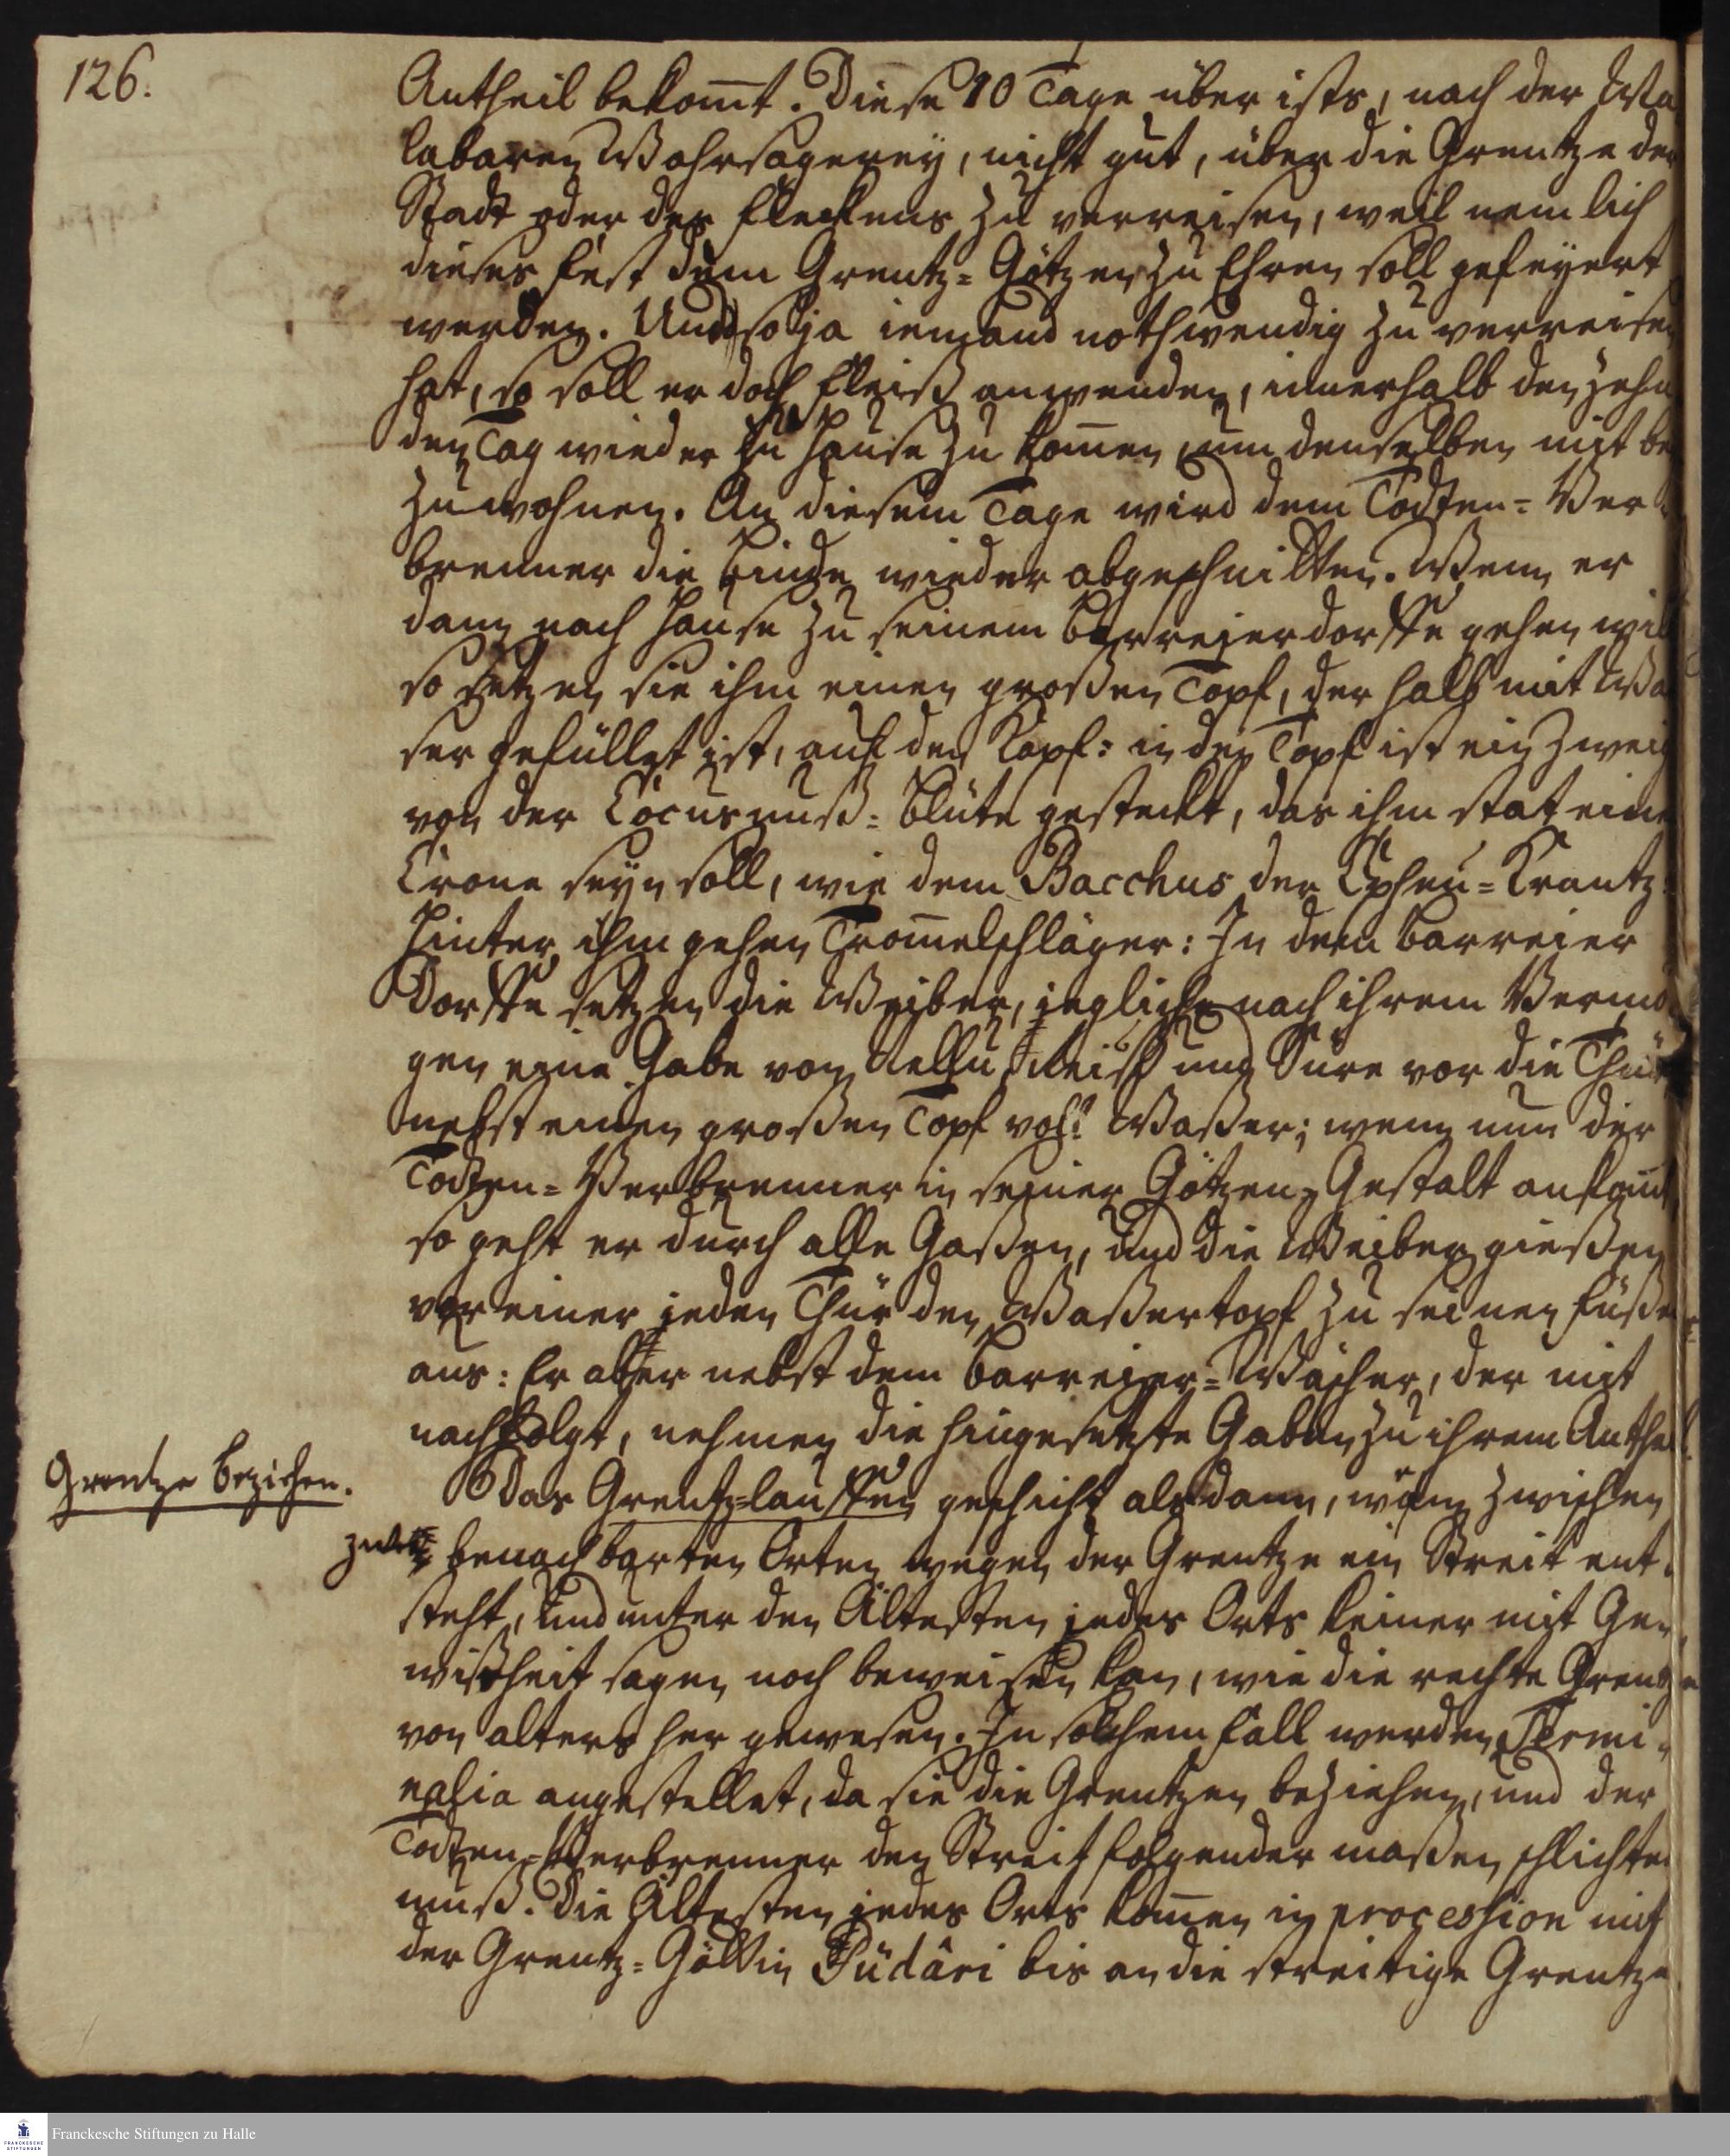 126.
Antheil bekom̅t. Diese 10 Tage über ists, nach der Ma
labaren Wahrsagerey, nicht gut, über die Grentze der
Stadt oder des Fleckens zu verreisen, weil nemlich
dieses Fest dem Grentz=Götzen zu Ehren soll gefeyert
werden. Und so ja iemand nothwendig zu verreisen
hat, so soll er doch Fleiß anwenden, innerhalb den zehn
den Tag wieder zu Hause zu kom̅en, um denselben mit bey
zuwohnen. An diesem Tage wird dem Todten=Ver
brenner die Binde wieder abgeschnitten. Wenn er
dann nach Hause zu seinem Barreierdorffe gehen wil
so setzen sie ihm einen großen Topf, der halb mit Was
ser gefüllet ist, auf den Kopf: in den Topf ist ein Zweig
von der Cocusnuß=Blüte gesteckt, das ihm stat einer
Crone seyn soll, wie dem Bacchus der Epheu=Krantz.
Hinter ihm gehen Trom̅elschläger: In dem Barreier
Dorffe setzen die Weiber, iegliche nach ihrem Vermö
gen eine Gabe von Nellu, Reiß und Süre vor die Thür
nebst einen großen Topf voll Waßer; wenn nun der
Todten=Verbrenner in seiner Götzen=Gestalt ankom̅t
so geht er durch alle Gaßen, und die Weiber gießen
vor einer jeden Thür den Waßertopf zu seinen Füßen
aus: Er aber nebst dem Barreier=Wäscher, der mit
nachfolgt, nehmen die hingesetzte Gaben zu ihrem Antheil.
Grentze beziehen.
Das Grentz=lauffen geschicht alsdann, wann zwischen
zwey benachbarten Orten wegen der Grentze ein Streit ent=
steht, und unter den Ältesten jedes Orts keiner mit Ge=
wißheit sagen noch beweisen kan, wie die rechte Grentze
von alters her gewesen. In solchem Fall werden Termi=
nalia angestellet, da sie die Grentzen beziehen, und der
Todten=Verbrenner den Streit folgender maßen schlichten
muß. Die Ältesten jedes Orts kom̅en in procession mit
der Grentz=Göttin Püdâri bis an die streitige Grentze
Franckesche Stiftungen zu Halle
FRANCKESCHE
STIFTUNGEN